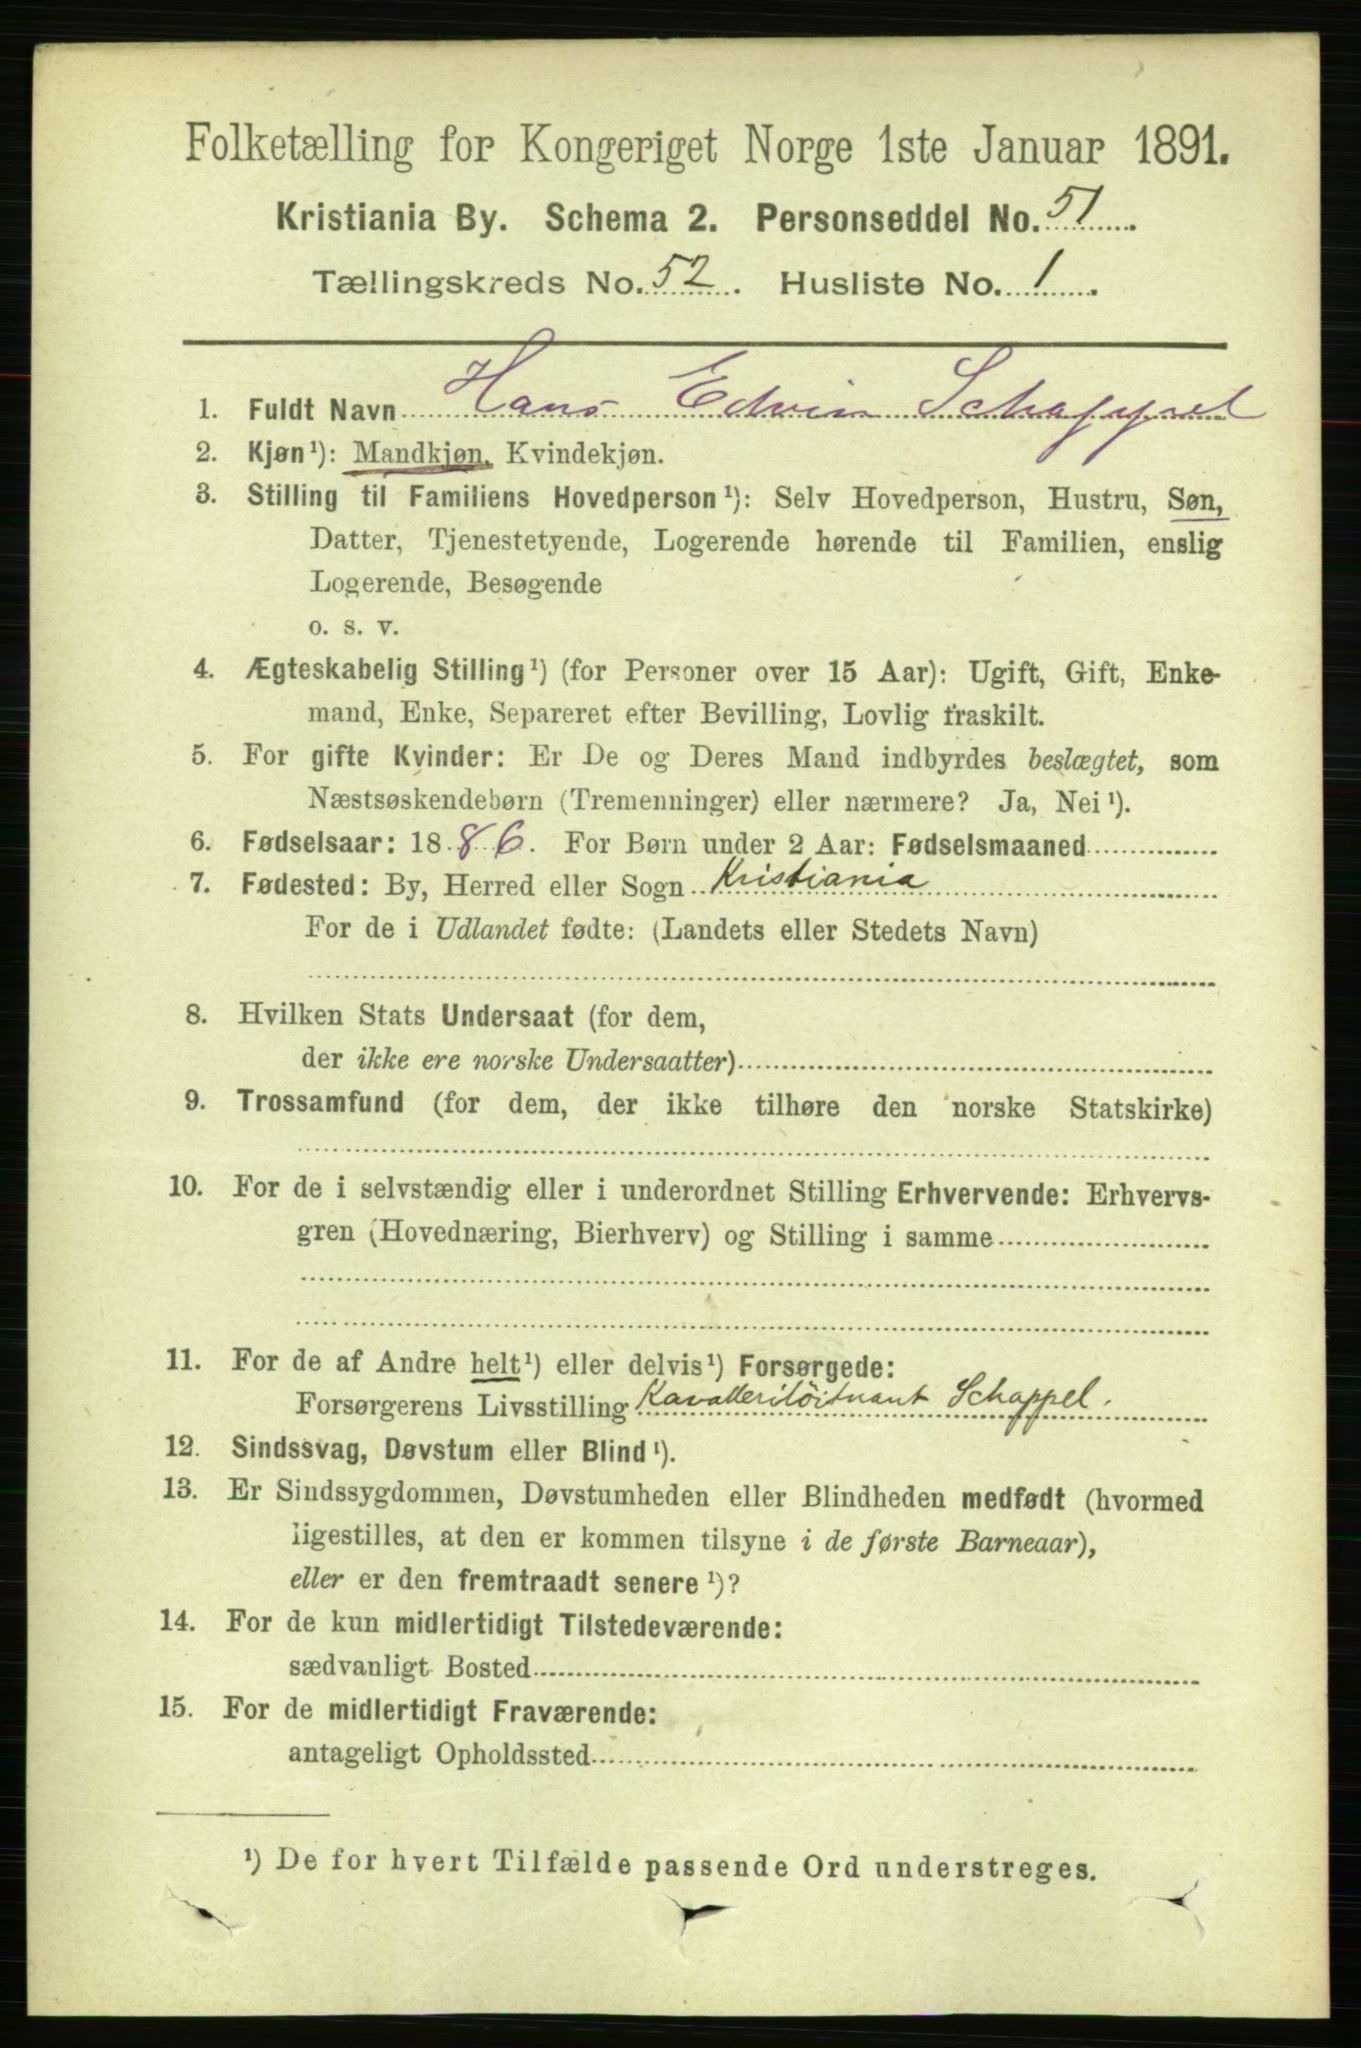 Folketælling for Kongeriget Norge 1ste Januar 1891.
Kristiania By. Schema 2. Personseddel No. 51.
Tællingskreds No. 52. Husliste No. 1.
1. Fuldt Navn Hans Edvin Schappel
2. Kjøn¹): Mandkjøn, Kvindekjøn.
3. Stilling til Familiens Hovedperson¹): Selv Hovedperson, Hustru, Søn,
Datter, Tjenestetyende, Logerende hørende til Familien, enslig
Logerende, Besøgende
o. s. v.
4. Ægteskabelig Stilling¹) (for Personer over 15 Aar): Ugift, Gift, Enke-
mand, Enke, Separeret efter Bevilling, Lovlig fraskilt.
5. For gifte Kvinder: Er De og Deres Mand indbyrdes beslægtet, som
Næstsøskendebørn (Tremenninger) eller nærmere? Ja, Nei¹).
6. Fødselsaar: 1886. For Børn under 2 Aar: Fødselsmaaned
7. Fødested: By, Herred eller Sogn Kristiania
For de i Udlandet fødte: (Landets eller Stedets Navn)
8. Hvilken Stats Undersaat (for dem,
der ikke ere norske Undersaatter)
9. Trossamfund (for dem, der ikke tilhøre den norske Statskirke)
10. For de i selvstændig eller i underordnet Stilling Erhvervende: Erhvervs-
gren (Hovednæring, Bierhverv) og Stilling i samme
11. For de af Andre helt¹) eller delvis¹) Forsørgede:
Forsørgerens Livsstilling Kavallerilöitnant Schappel.
12. Sindssvag, Døvstum eller Blind¹).
13. Er Sindssygdommen, Døvstumheden eller Blindheden medfødt (hvormed
ligestilles, at den er kommen tilsyne i de første Barneaar),
eller er den fremtraadt senere¹)?
14. For de kun midlertidigt Tilstedeværende:
sædvanligt Bosted
15. For de midlertidigt Fraværende:
antageligt Opholdssted
¹) De for hvert Tilfælde passende Ord understreges.